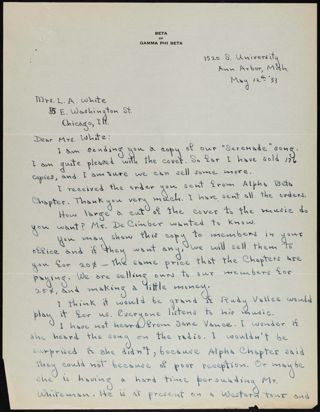 BETA
OF
GAMMA PHI BETA
1520 S. University
Ann Arbor, Mich
May 12th '33
Mrs. L. A. White
E. Washington St.
Chicago, Ill.
Dear Mrs. White:
I am sending you a copy of our "Serenade" song.
I am quite pleased with the cover. So far I have sold
copies, and I am sure we can sell some more.
I received the order you sent from Alpha Beta
Chapter. Thank you very much. I have sent all the orders.
How large a cut of the cover to the music do
you want? Mr. DeCimber wanted to know.
You may show this copy to members in your
office and if they want any, we will sell them to
you for 22¢ - the same price that the Chapters are
paying. We are selling ours to our members for
25¢ and making a little money.
I think it would be grand if Rudy Vallee would
play it for us. Everyone listens to his music.
I have not heard from Jane Vance. I wonder if
she heard the song on the radio. I wouldn't be
surprised if she didn't, because Alpha Chapter said
they could not because of poor reception. Or maybe
she is having a hard time persuading Mr.
Whiteman. He is at present on a Western tour and